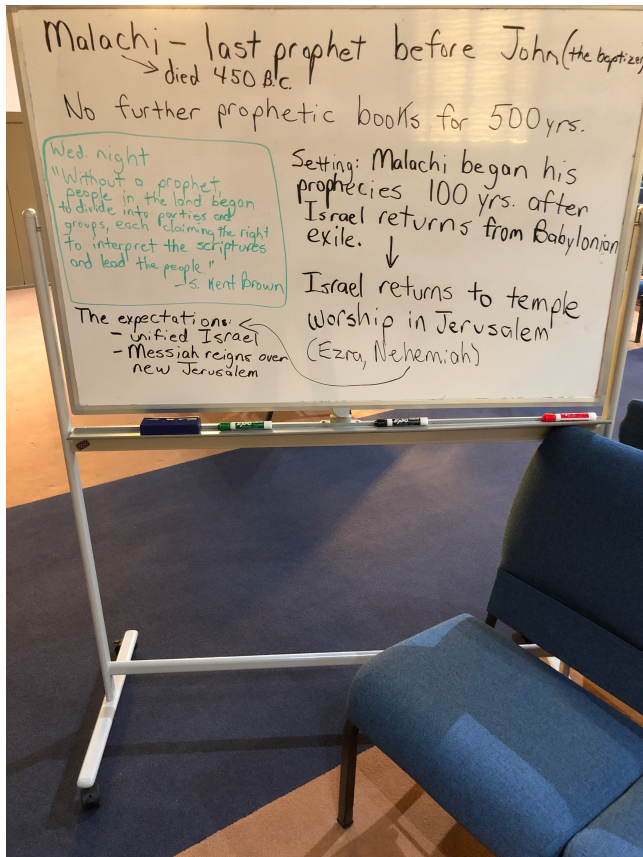 Malachi – last prophet before John (the baptizer
died 450 B.C.
No further prophetic books for 500 yrs.
Wed. night
"Without a prophet,
people in the land began
to divide into parties and
groups, each claiming the right
to interpret the scriptures
and lead the people."
- S. Kent Brown
Setting: Malachi began his
prophecies 100 yrs. after
Israel returns from Babylonian
exile.
Israel returns to temple
worship in Jerusalem
(Ezra, Nehemiah)
The expectations:
- unified Israel
- Messiah reigns over
new Jerusalem